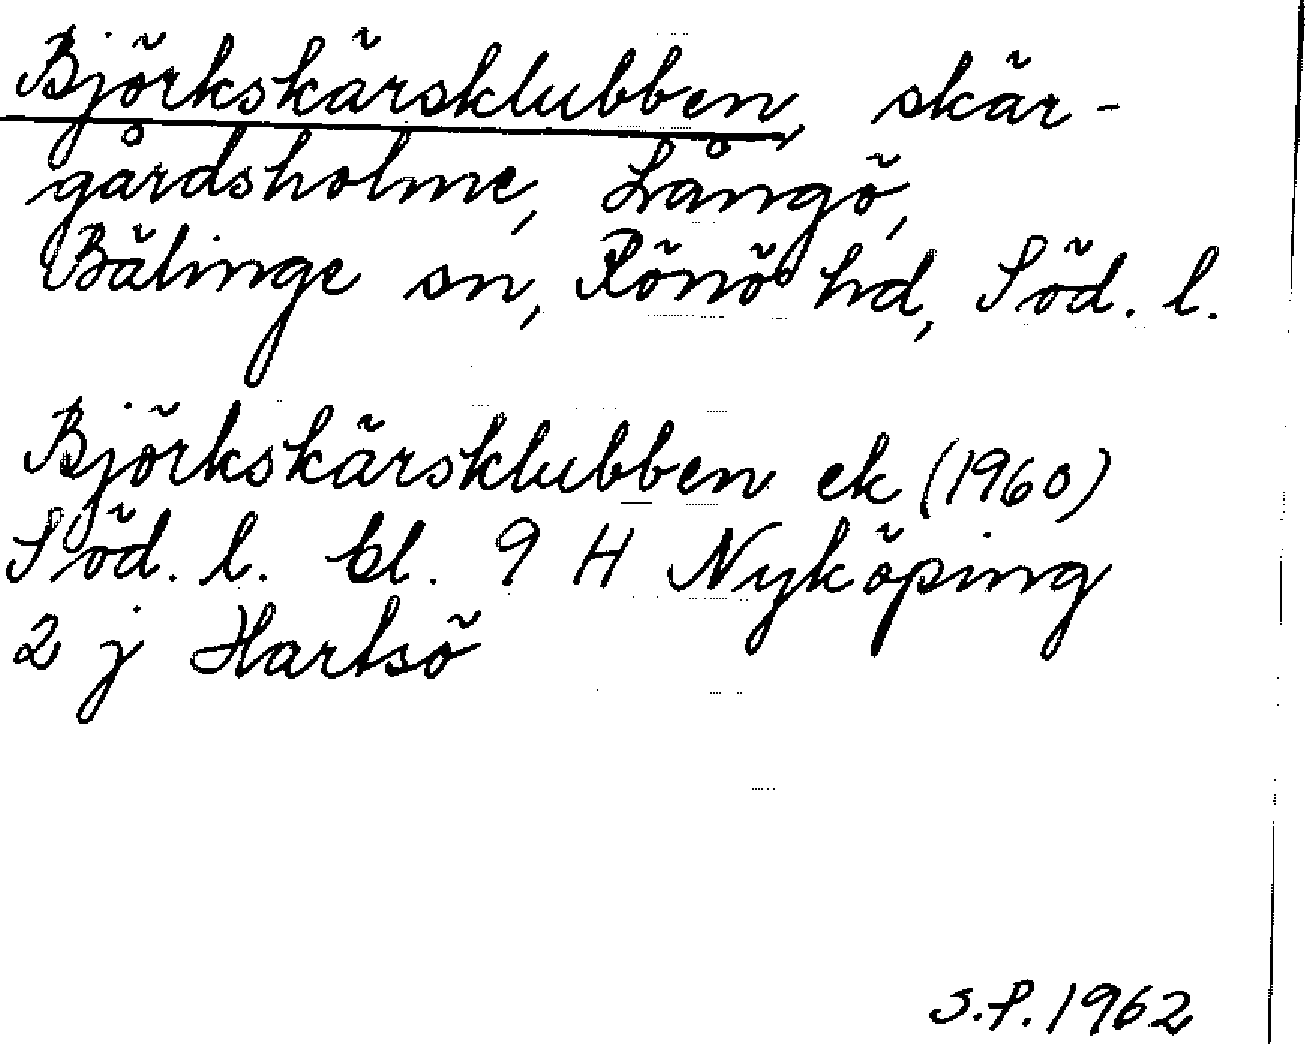 Björkskärsklubben, skär-
gårdsholme, Långö,
Bälinge sn, Rönö hd, Söd. l.
Björkskärsklubben ek (1960)
Söd. l. bl. 9 H Nyköping
2 j Hartsö
S.P. 1962